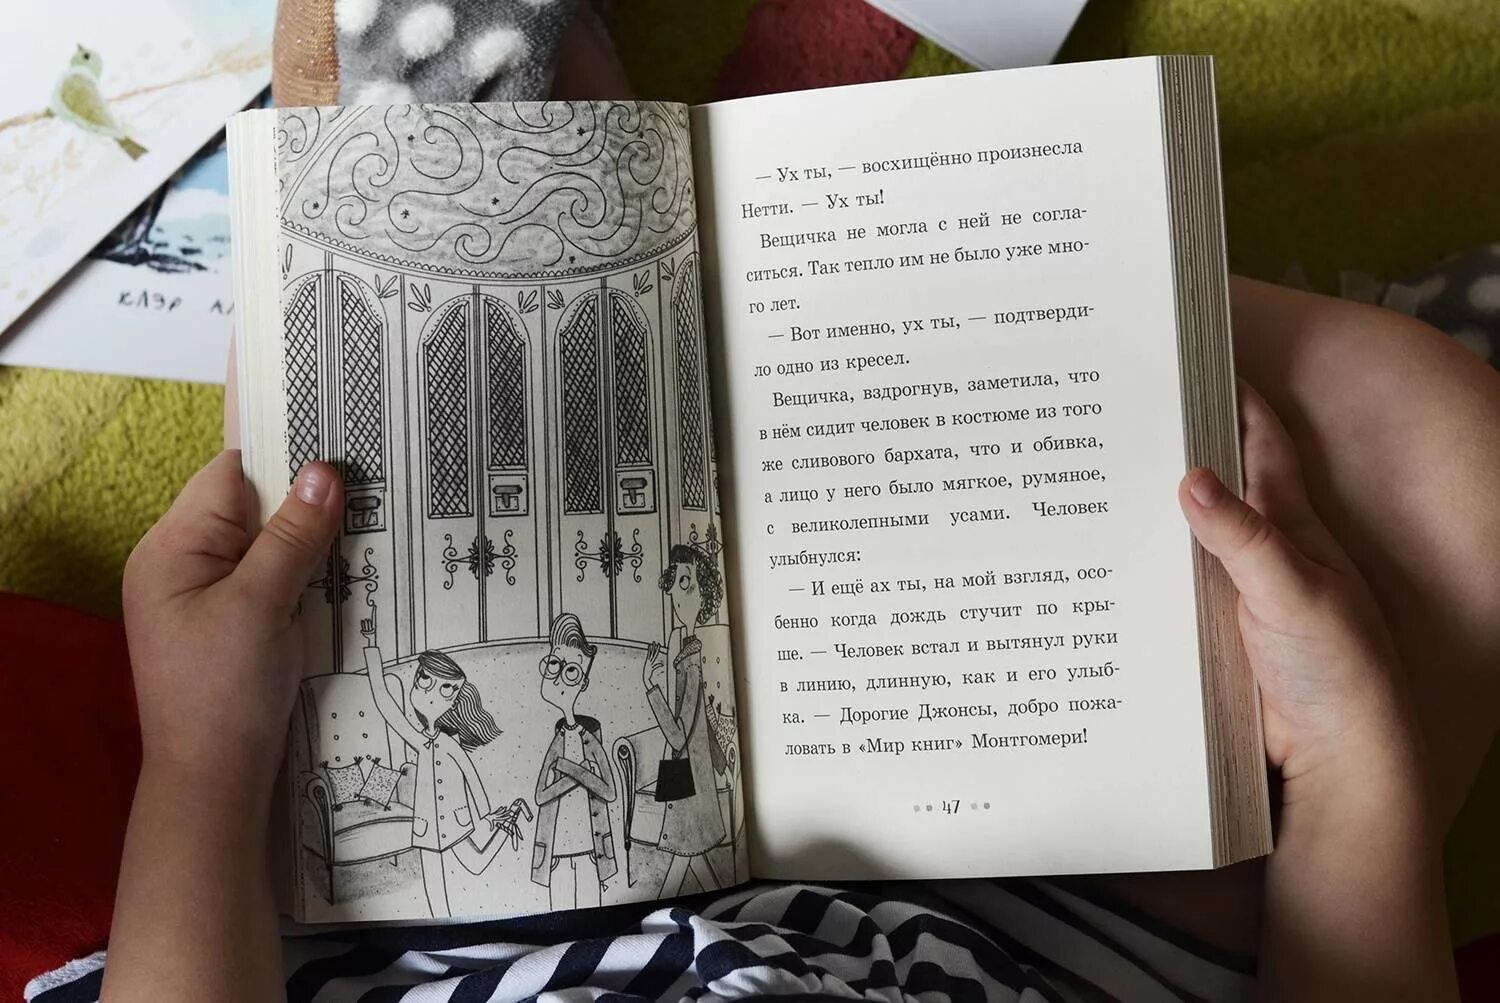 КЛЭР
— Ух ты, — восхищённо произнесла
Нетти. — Ух ты!
Вещичка не могла с ней не согла-
ситься. Так тепло им не было уже мно-
го лет.
— Вот именно, ух ты, — подтверди-
ло одно из кресел.
Вещичка, вздрогнув, заметила, что
в нём сидит человек в костюме из того
же сливового бархата, что и обивка,
а лицо у него было мягкое, румяное,
с великолепными усами. Человек
улыбнулся:
— И ещё ах ты, на мой взгляд, осо-
бенно когда дождь стучит по кры-
ше. — Человек встал и вытянул руки
в линию, длинную, как и его улыб-
ка. — Дорогие Джонсы, добро пожа-
ловать в «Мир книг» Монтгомери!
47